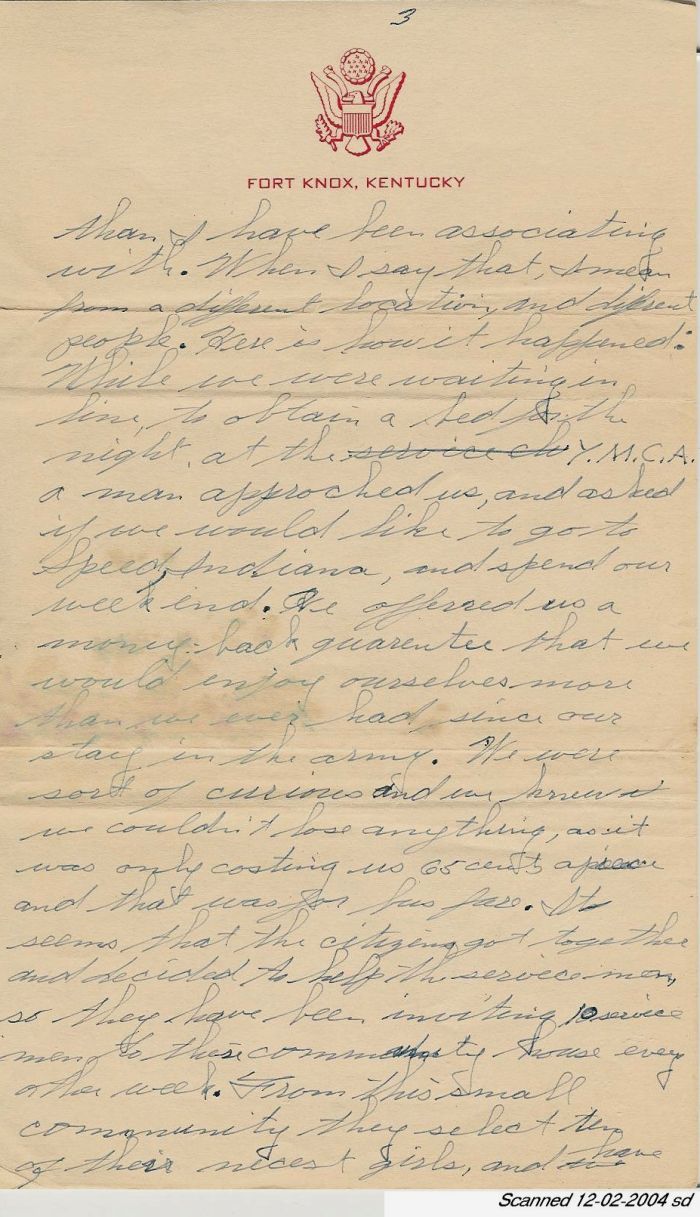 3
FORT KNOX, KENTUCKY
than I have been associating
with. When I say that, I mean
from a different location, and different
people. Here is how it happened:
While we were waiting in
line, to obtain a bed for the
night, at the service clu Y.M.C.A.
a man approched us, and asked
if we would like to go to
Speed, Indiana, and spend our
week end. He offerred us a
money-back guarentee that we
would enjoy ourselves more
than we ever had, since our
stay in the army. We were
sort of curious and we knew
we couldn't lose anything, as it
was only costing us 65 cents apiece
and that was for bus fare. It
seems that the citizens got together
and decided to help the service men,
so they have been inviting 10 service
men to their community house every
other week. From this small
community they select ten
of their nicest girls, and have
Scanned 12-02-2004 sd